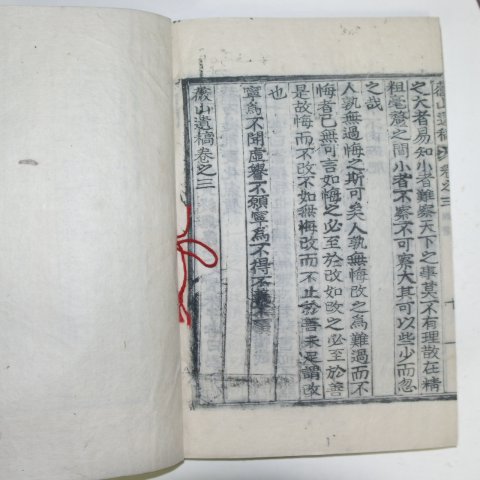 之大者易知小者難察天下之事莫不有理散在精
粗毫釐之間小者不察不可察大其可以些少而忽
之哉
人孰無過悔之斯可矣人孰無悔改之爲難過而不
悔者已無可言如悔之必至於改如改之必至於善
是故悔而不改不如無悔改而不止於善未足謂改
也
寧爲不聞虛譽不願寧爲不得不
山遺稿卷之三
山遺稿 卷之三
十